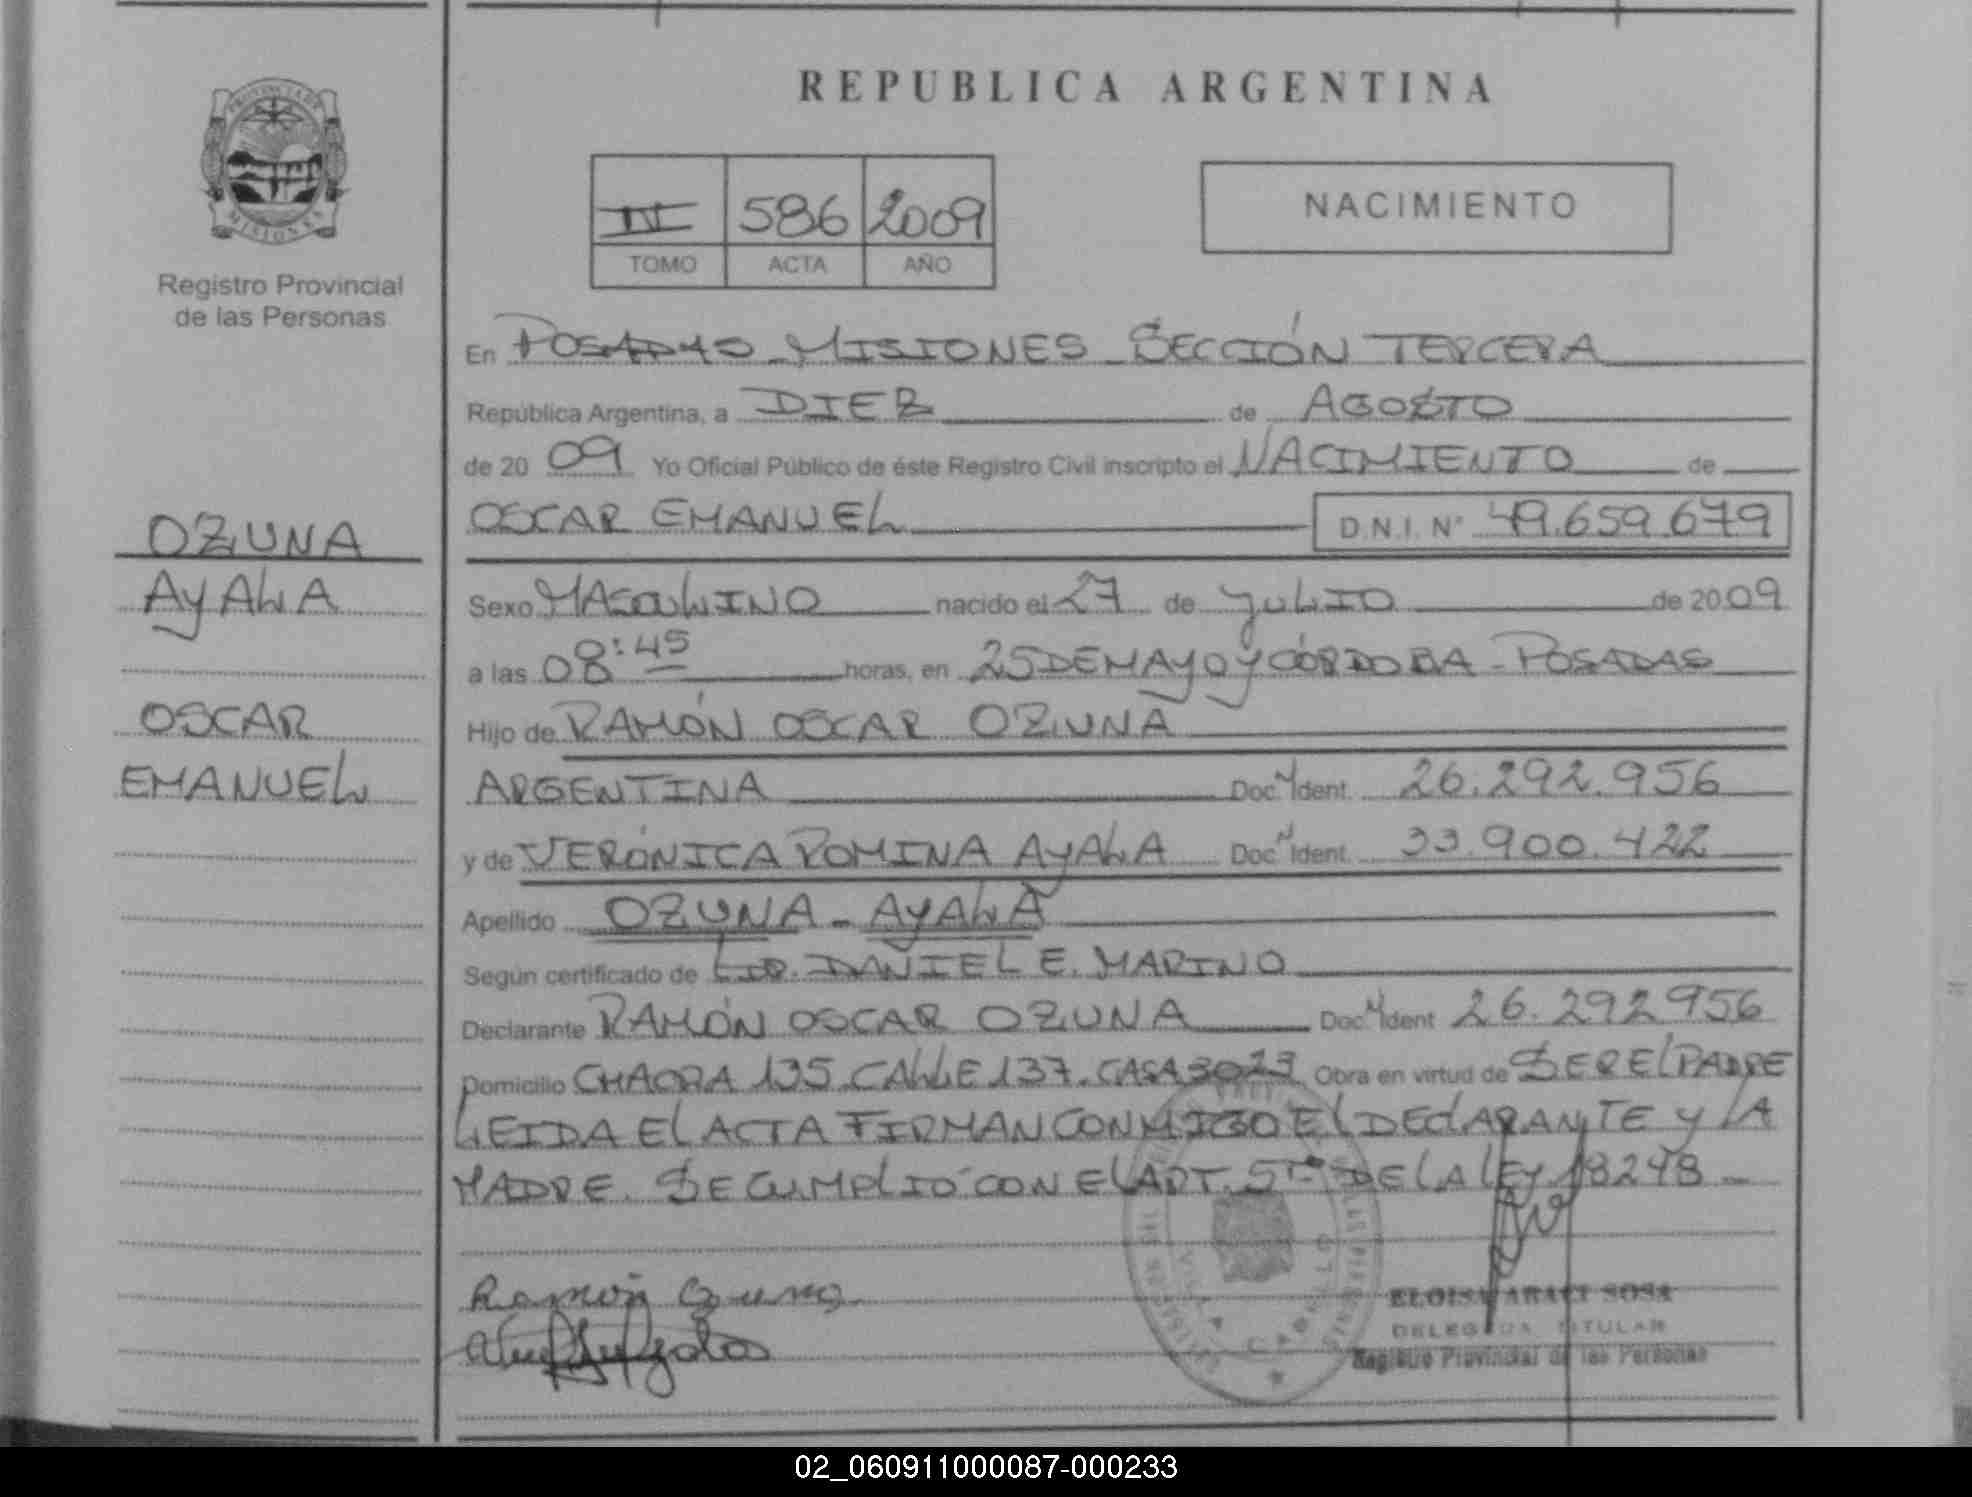 REPUBLICA ARGENTINA
PROVINCIA DE
MISIONES
Registro Provincial
de las Personas
586 2009
TOMO ACTA AÑO
NACIMIENTO
En POSADAS MISIONES SECCIÓN TERCERA
República Argentina, a DIEZ de AGOSTO
de 2009 Yo Oficial Público de éste Registro Civil inscripto el NACIMIENTO de
OSCAR EMANUEL D.N.I. N° 49.659.679
OZUNA
AYALA
OSCAR
EMANUEL
Sexo MASCULINO nacido el 27 de JULIO de 2009
a las 08:45 horas, en 25 DE MAYO Y CÓRDOBA - POSADAS
Hijo de RAMÓN OSCAR OZUNA
ARGENTINA Doc. Ident. 26.292.956
y de VERÓNICA ROMINA AYALA Doc. Ident. 33.900.422
Apellido OZUNA - AYALA
Según certificado de DANIEL E. MARINO
Declarante RAMÓN OSCAR OZUNA Doc. Ident 26.292956
Domicilio CHACRA 135. CALLE 137. CASA Obra en virtud de SER EL PADRE
LEIDA EL ACTA FIRMAN CONMIGO EL DECLARANTE Y LA
MADRE. SE CUMPLIÓ CON EL ART. 5to DE LA LEY 18248
Ramón Ozuna
ELOISA ARACI SOSA
DELEGADA TITULAR
Registro Provincial de las Personas
02_060911000087-000233